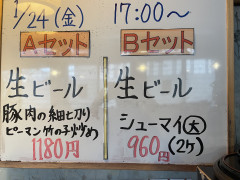 1/24(金) 17:00〜
Aセット
生ビール
豚肉の細切り
ピーマン竹の子炒め
1180円
Bセット
生ビール
シューマイ(大)
960円(2ケ)